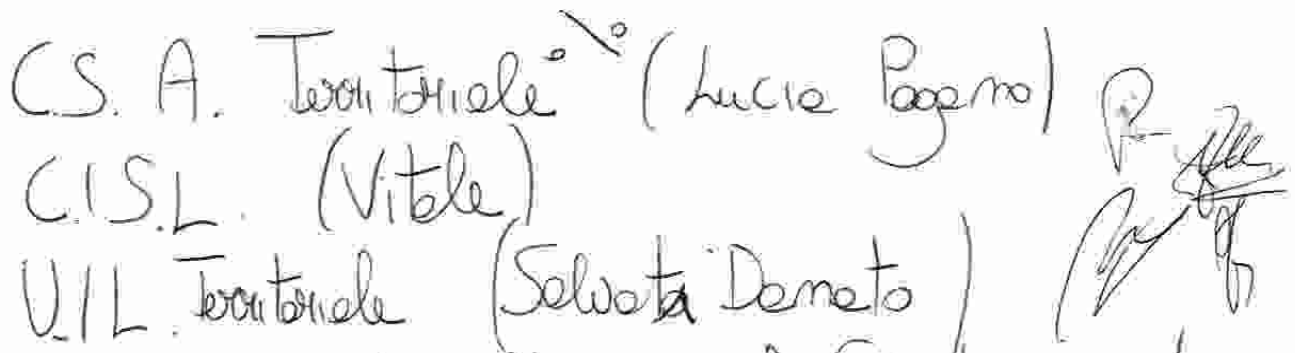 C.S. A. Territoriale (Lucia Pagano)
C.I.S.L. (Vitale)
U.I L. Territoriale (Salvata Donato)